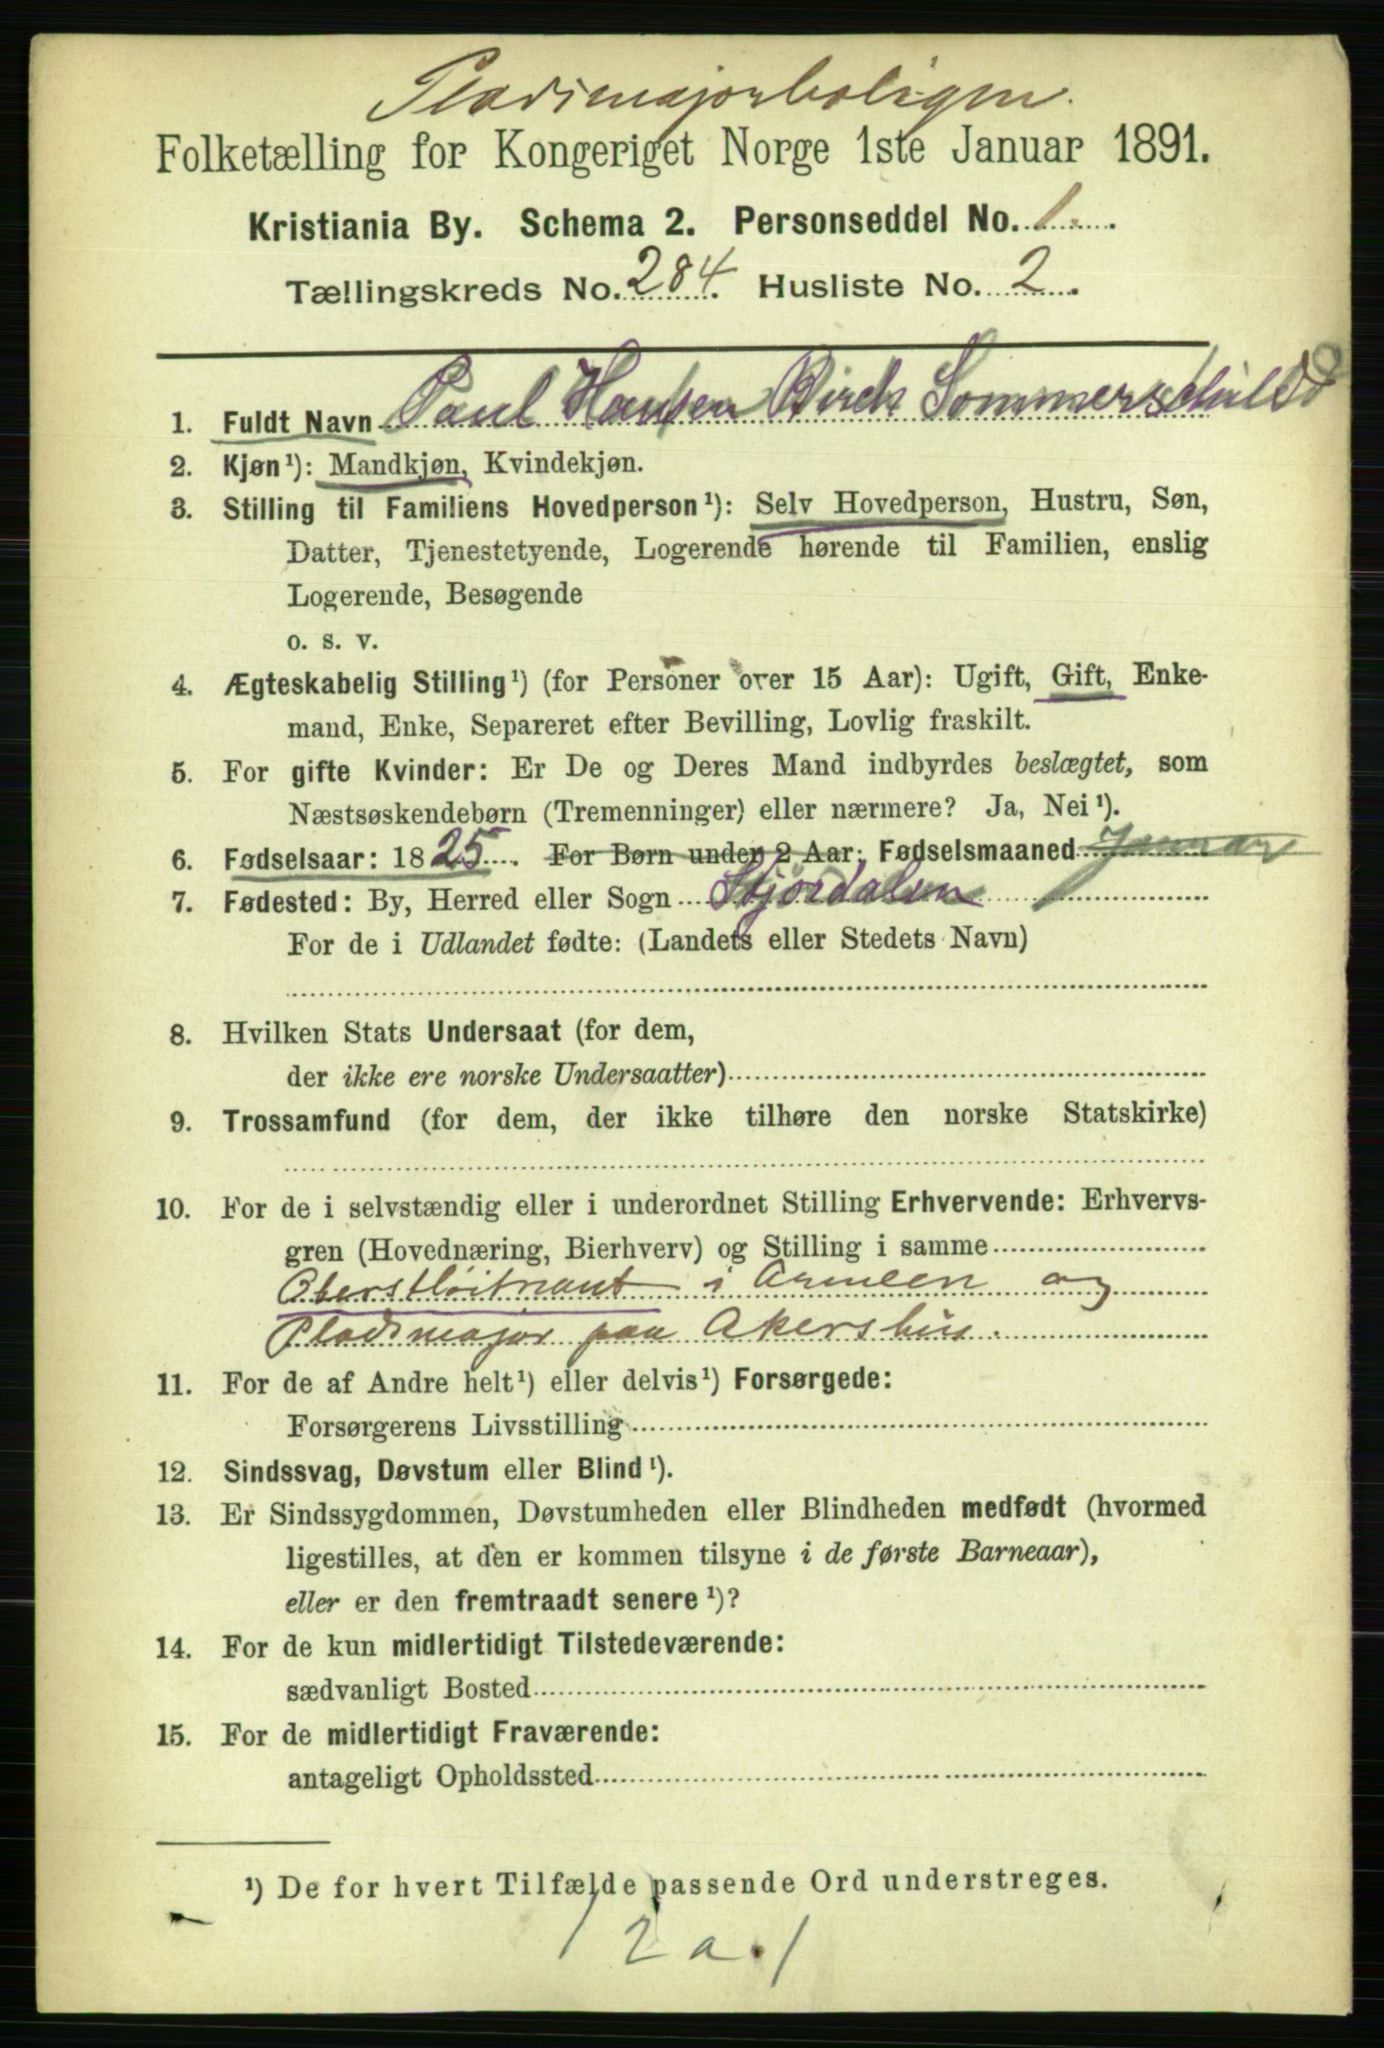 Pladsmajorboligen.
Folketælling for Kongeriget Norge 1ste Januar 1891.
Kristiania By. Schema 2. Personseddel No. 1.
Tællingskreds No. 284. Husliste No. 2.
1. Fuldt Navn Paul Hansen Birch Sommerschildd
2. Kjøn¹): Mandkjøn, Kvindekjøn.
3. Stilling til Familiens Hovedperson¹): Selv Hovedperson, Hustru, Søn,
Datter, Tjenestetyende, Logerende hørende til Familien, enslig
Logerende, Besøgende
o. s. v.
4. Ægteskabelig Stilling¹) (for Personer over 15 Aar): Ugift, Gift, Enke-
mand, Enke, Separeret efter Bevilling, Lovlig fraskilt.
5. For gifte Kvinder: Er De og Deres Mand indbyrdes beslægtet, som
Næstsøskendebørn (Tremenninger) eller nærmere? Ja, Nei¹).
6. Fødselsaar: 1825. For Børn under 2 Aar: Fødselsmaaned Januar
7. Fødested: By, Herred eller Sogn Stjørdalen
For de i Udlandet fødte: (Landets eller Stedets Navn)
8. Hvilken Stats Undersaat (for dem,
der ikke ere norske Undersaatter)
9. Trossamfund (for dem, der ikke tilhøre den norske Statskirke)
10. For de i selvstændig eller i underordnet Stilling Erhvervende: Erhvervs-
gren (Hovednæring, Bierhverv) og Stilling i samme
Oberstløitnant i Armeen og
Pladsmajor paa Akershus.
11. For de af Andre helt¹) eller delvis¹) Forsørgede:
Forsørgerens Livsstilling
12. Sindssvag, Døvstum eller Blind¹).
13. Er Sindssygdommen, Døvstumheden eller Blindheden medfødt (hvormed
ligestilles, at den er kommen tilsyne i de første Barneaar),
eller er den fremtraadt senere¹)?
14. For de kun midlertidigt Tilstedeværende:
sædvanligt Bosted
15. For de midlertidigt Fraværende:
antageligt Opholdssted
¹) De for hvert Tilfælde passende Ord understreges.
/ 2 a. /